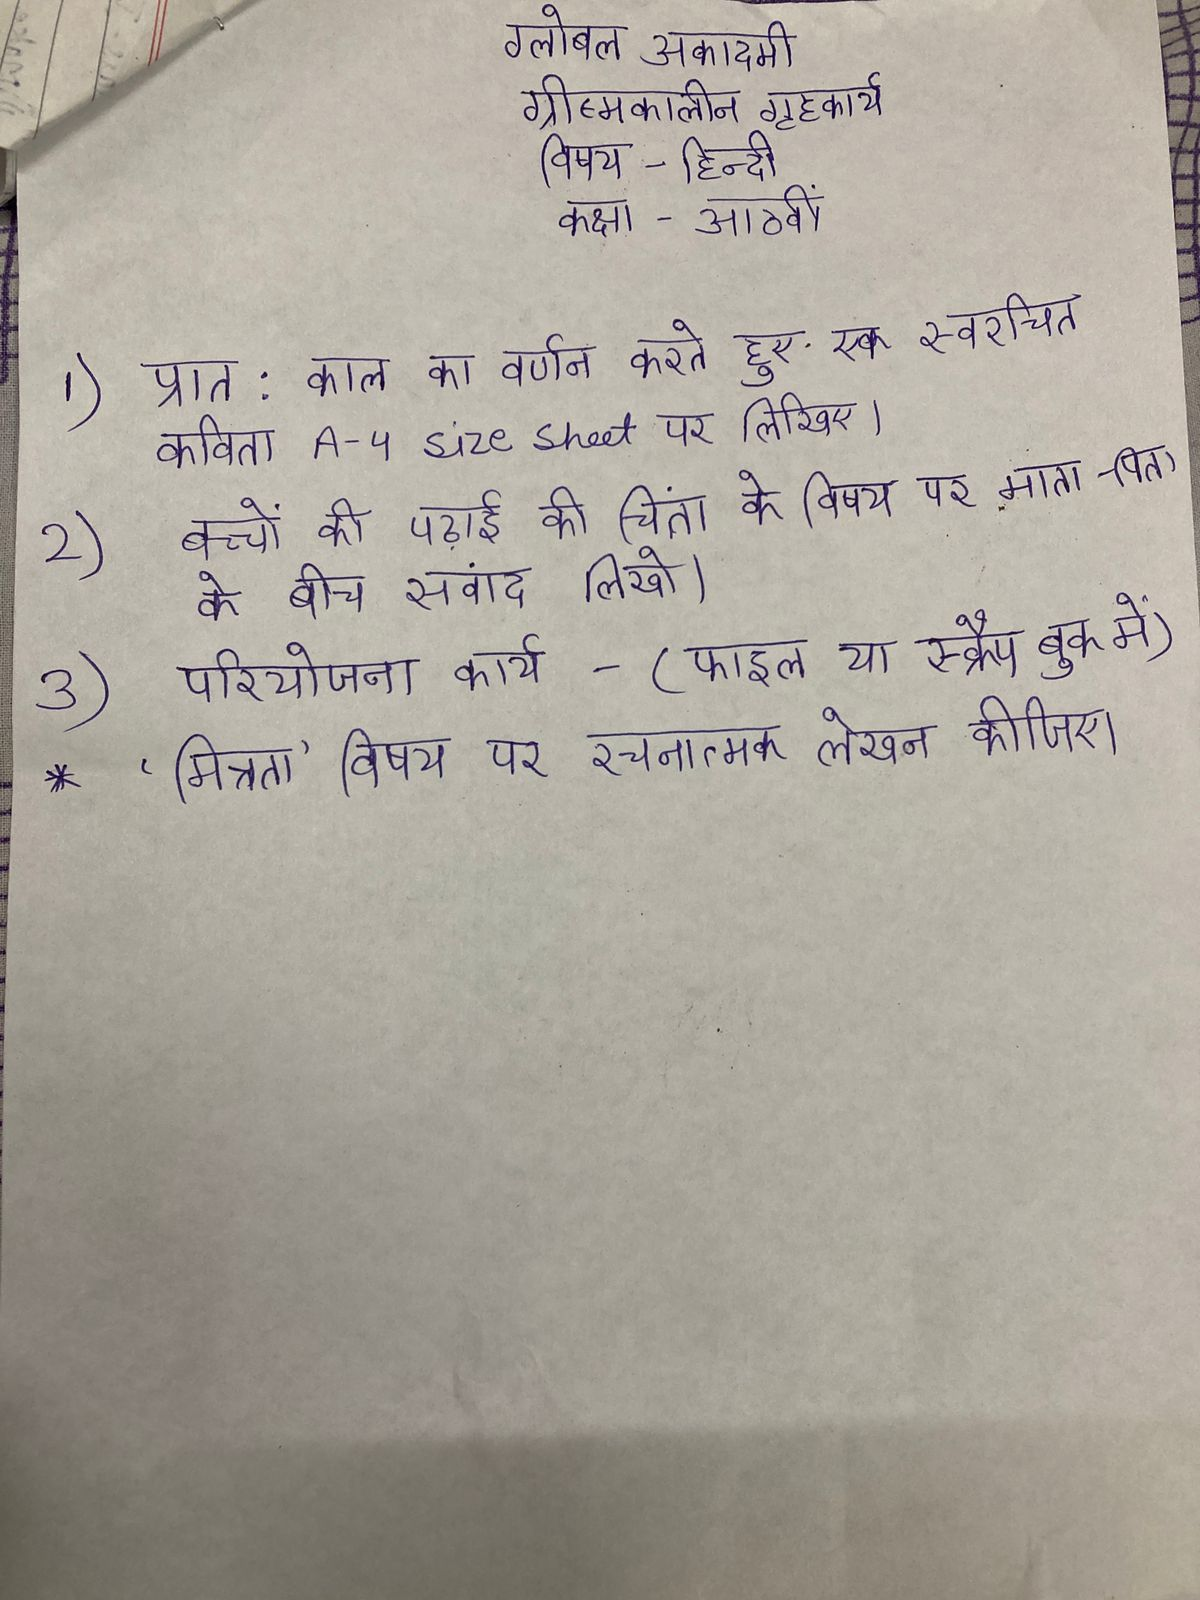 ग्लोबल अकादमी
ग्रीष्मकालीन गृहकार्य
विषय - हिन्दी
कक्षा - आठवीं
1) प्रात: काल का वर्णन करते हुए एक स्वरचित
कविता A-4 size sheet पर लिखिए।
2) बच्चों की पढ़ाई की चिंता के विषय पर माता-पिता
के बीच सवांद लिखो।
3) परियोजना कार्य - (फाइल या स्क्रैप बुक में)
* 'मित्रता' विषय पर रचनात्मक लेखन कीजिए।